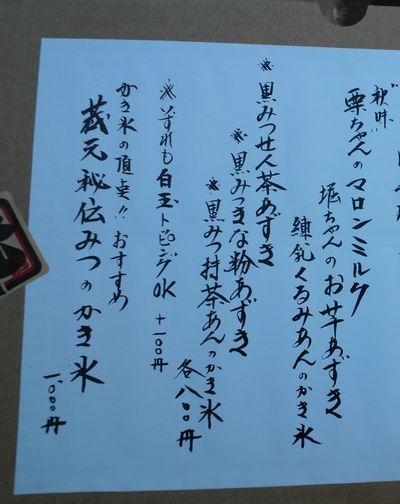 秋味
栗ちゃんのマロンミルク
堀ちゃんのお芋あずき
練乳くるみあんのかき氷
※黒みつせん茶あずき
※黒みつきな粉あずき
※黒みつ抹茶あんのかき氷
各八〇〇円
※いずれも白玉トッピングOK +一〇〇円
かき氷の頂点!!おすすめ
蔵元秘伝みつのかき氷
一、〇〇〇円